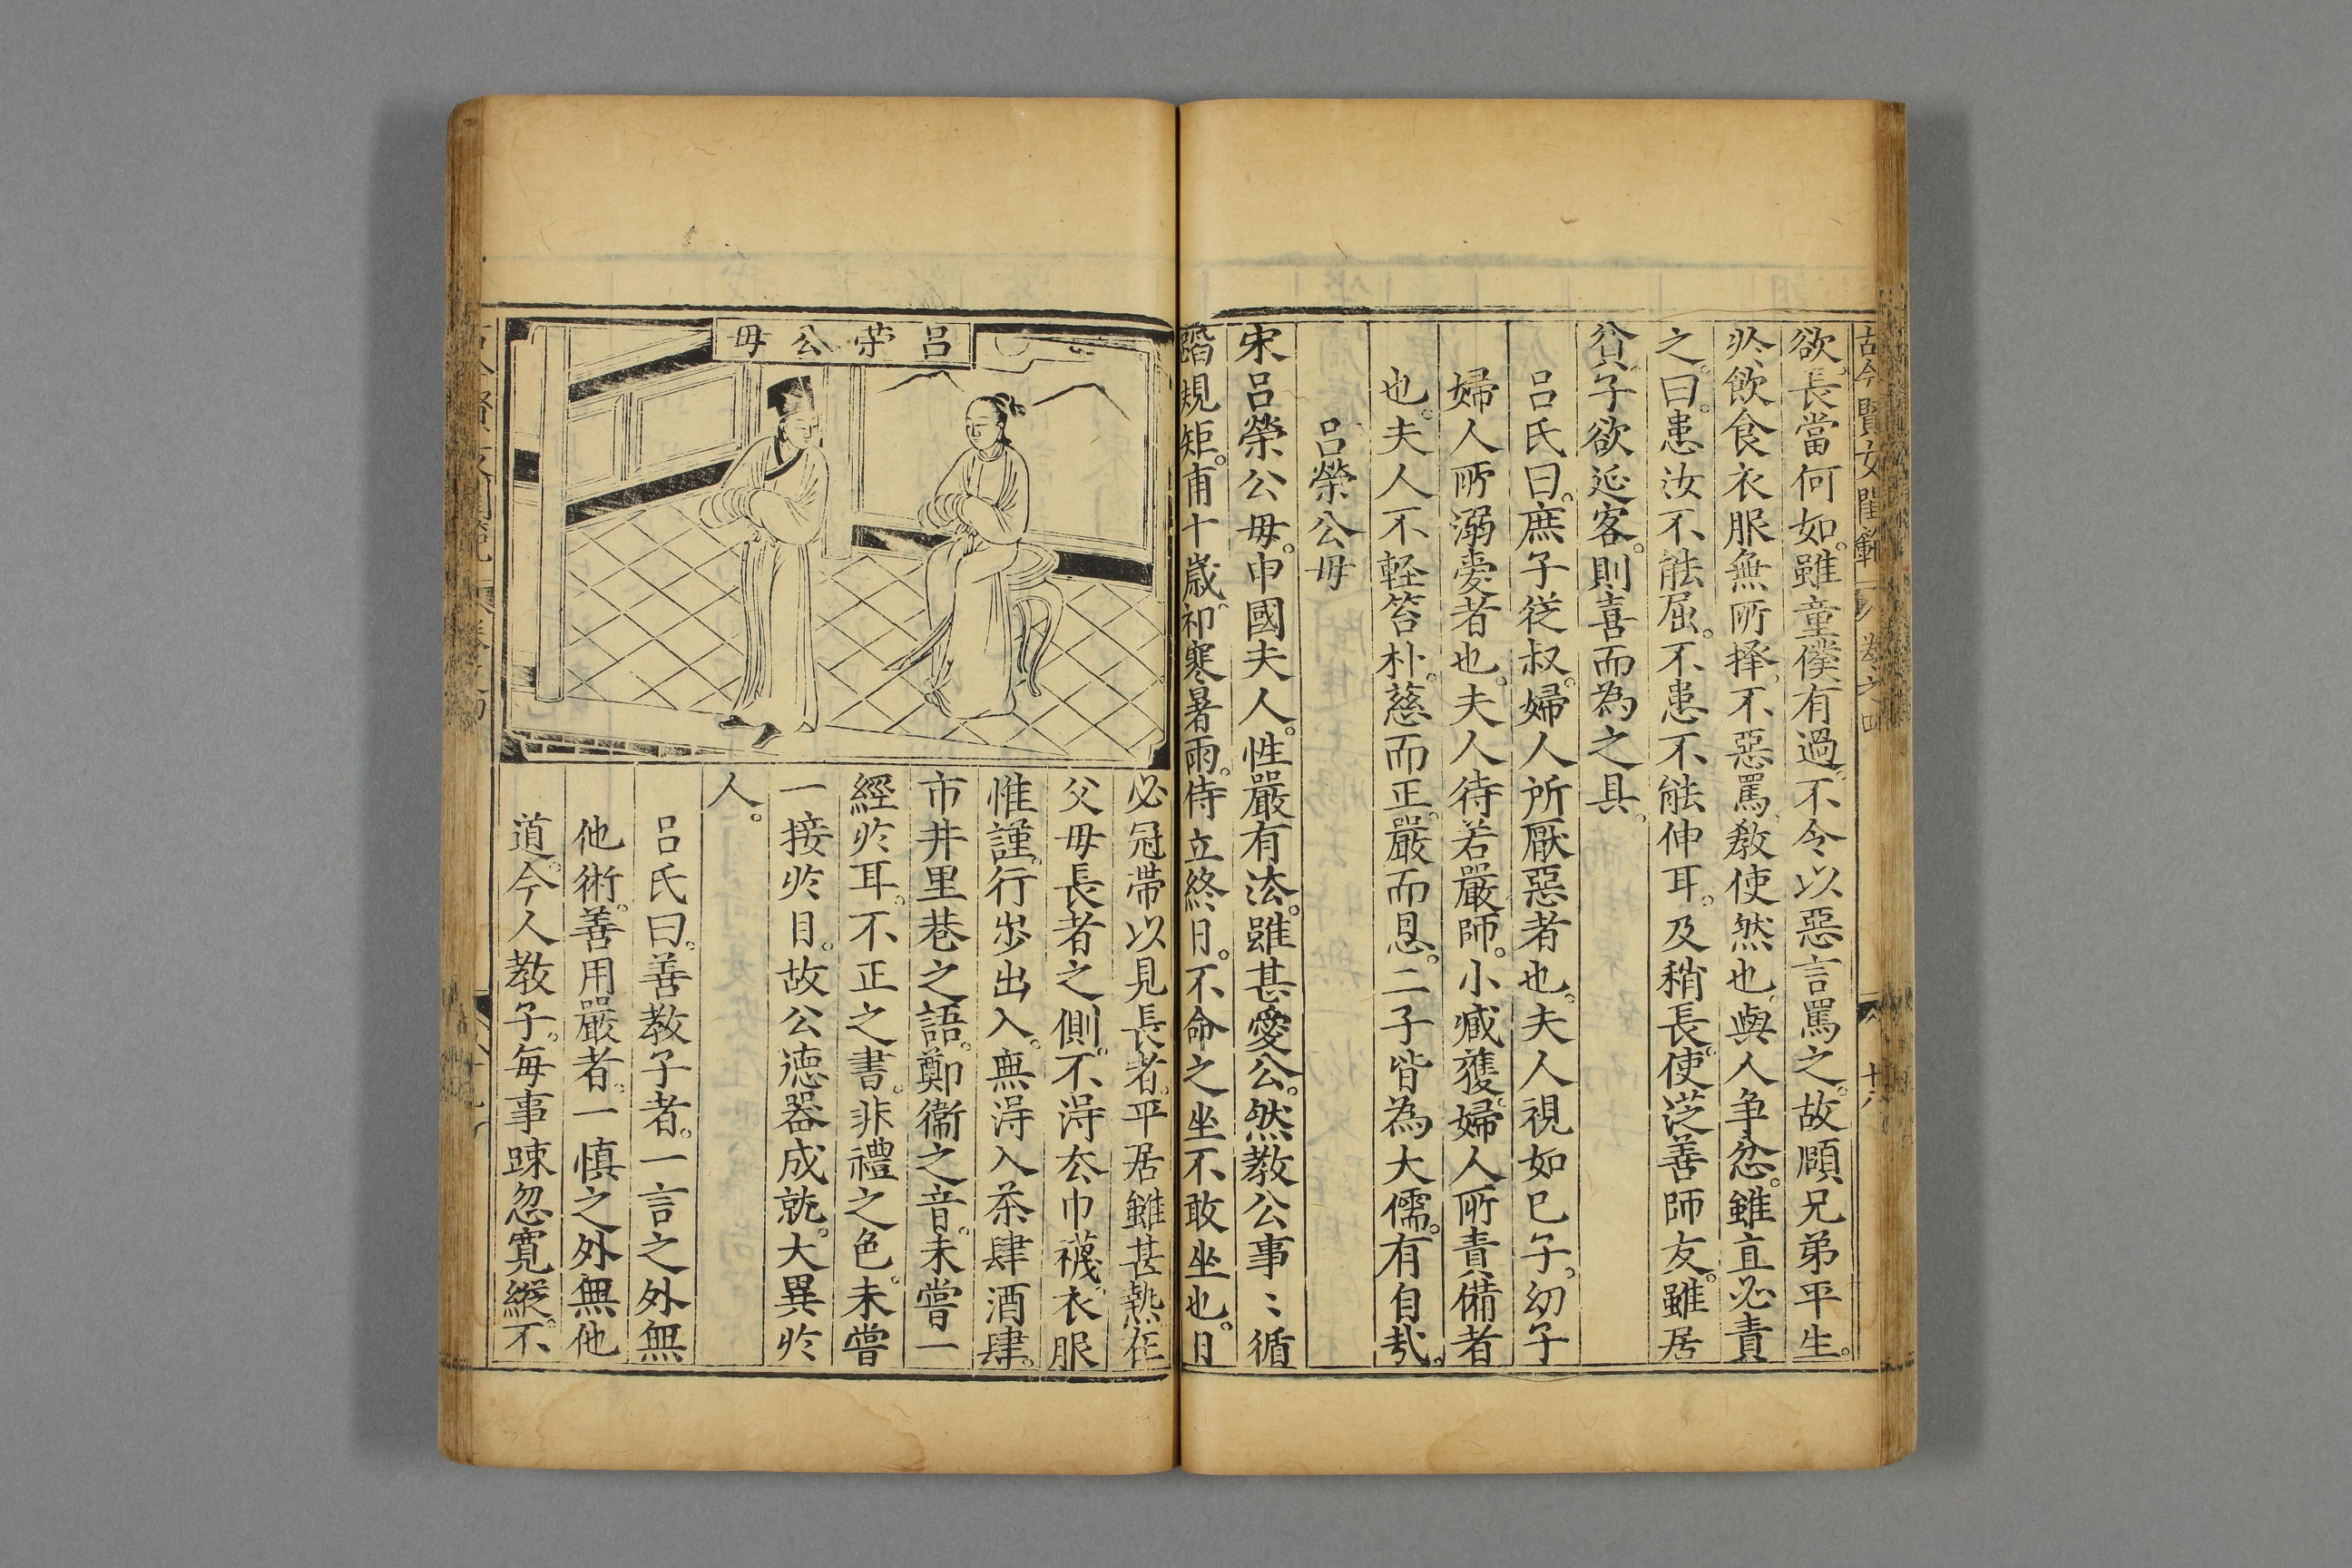 古今賢女閨範 卷之四 十八
欲長當何如。雖童僕有過。不令以惡言罵之。故頤兄弟平生。
於飲食衣服無所擇。不惡罵。敎使然也。與人争忿。雖直必責
之。曰。患汝不能屈。不患不能伸耳。及稍長。使從善師友。雖居
貧。子欲延客。則喜而為之具。
呂氏曰。庶子從叔。婦人所厭惡者也。夫人視如已子。幼子
婦人所溺愛者也。夫人待若嚴師。小臧獲。婦人所責備者
也。夫人不軽笞朴。慈而正。嚴而恩。二子皆為大儒。有自㢤。
呂榮公毋
宋呂榮公毋。申國夫人。性嚴有法。雖甚愛公。然教公事〻循
蹈規矩。甫十歲。祁寒暑雨。侍立終日。不命之坐不敢坐也。日
呂荣公毋
必冠帶以見長者。平居雖甚熱。在
父毋長者之側。不得去巾襪。衣服
惟謹。行步出入。無得入茶肆酒肆。
市井里巷之語。鄭衞之音。未嘗一
經於耳。不正之書。非禮之色。未嘗
一接於目。故公德器成就。大異於
人。
呂氏曰。善教子者。一言之外無
他術。善用嚴者。一慎之外無他
道。今人教子。毎事踈忽寛縱。不